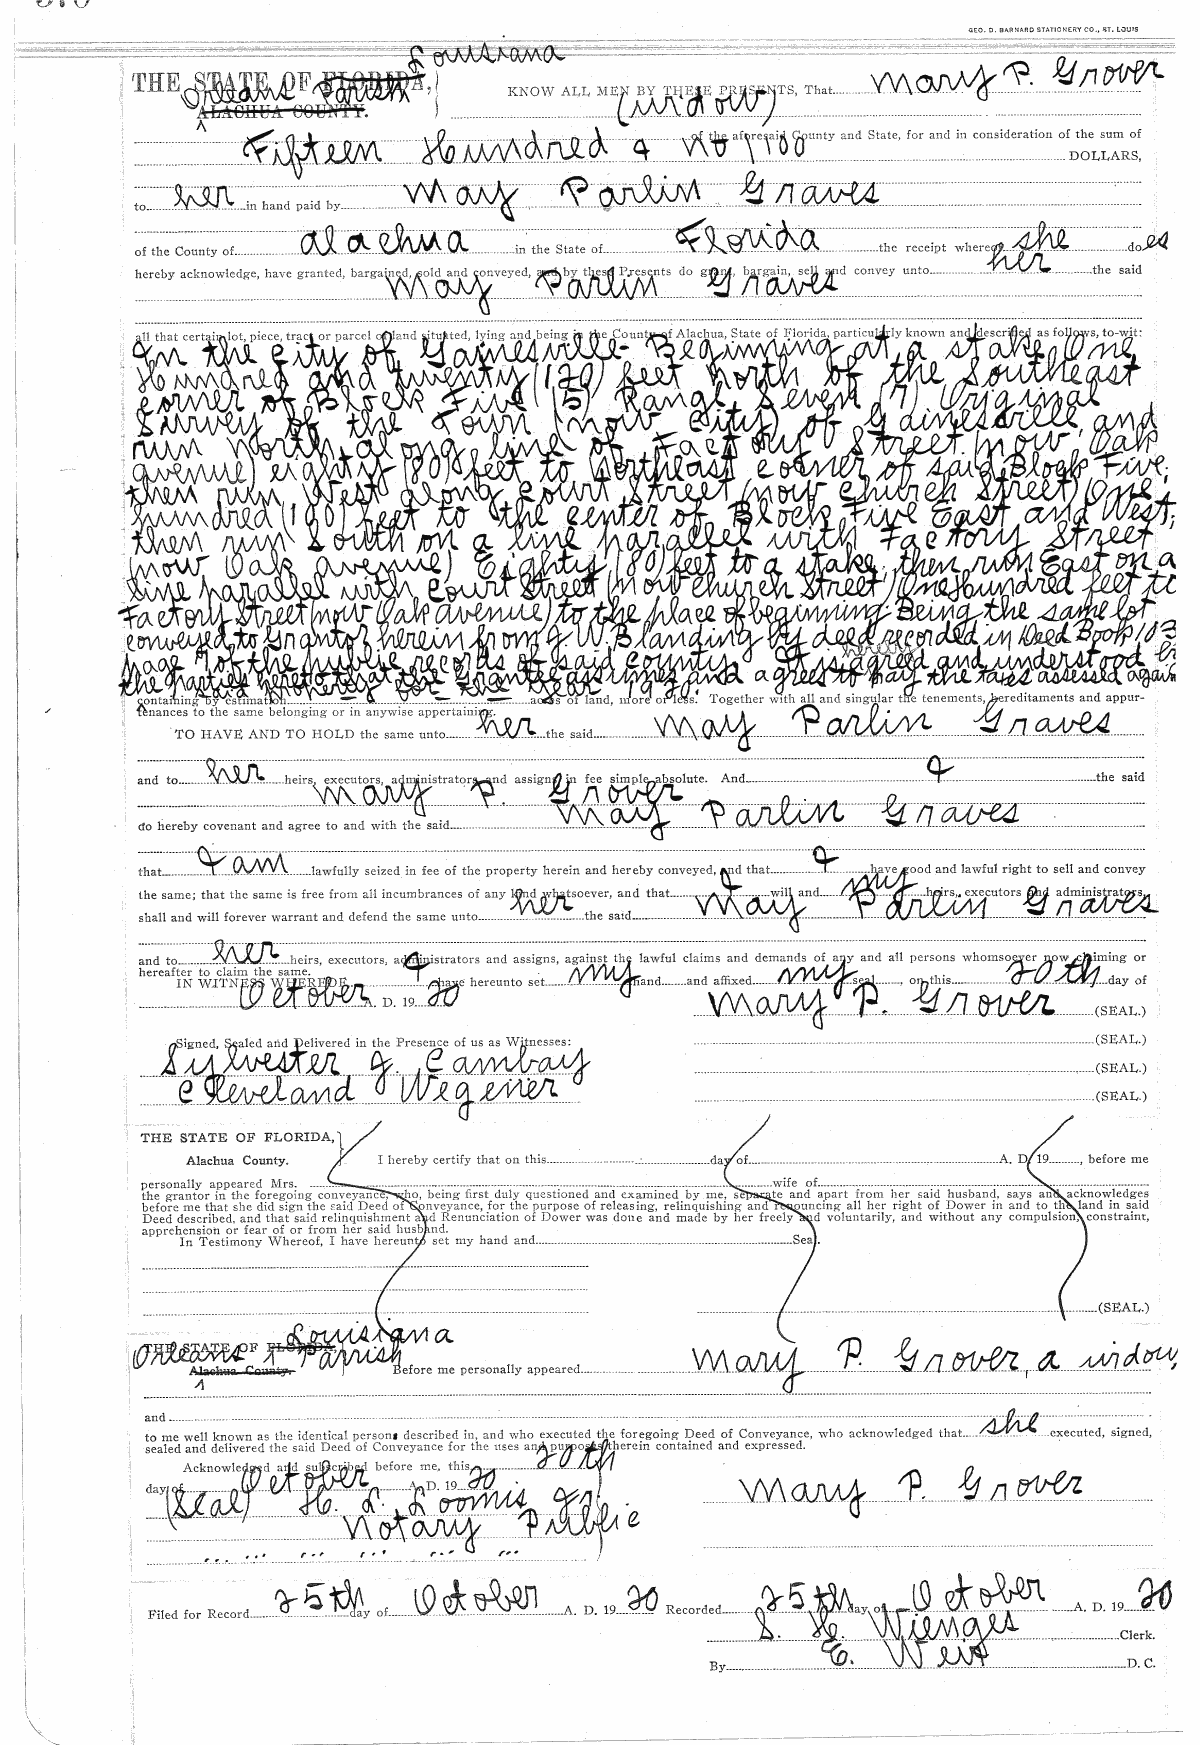 GEO. D. BARNARD STATIONERY CO., ST. LOUIS
Louisiana
THE STATE OF FLORIDA,
Orleans Parish
ALACHUA COUNTY.
KNOW ALL MEN BY THESE PRESENTS, That Mary P. Grover
(widow)
of the aforesaid County and State, for and in consideration of the sum of
Fifteen Hundred & no/100 DOLLARS,
to her in hand paid by May Parlin Graves
of the County of Alachua in the State of Florida the receipt whereof she does
hereby acknowledge, have granted, bargained, sold and conveyed, and by these Presents do grant, bargain, sell and convey unto her the said
May Parlin Graves
all that certain lot, piece, tract or parcel of land situated, lying and being in the County of Alachua, State of Florida, particularly known and described as follows, to-wit:
In the city of Gainesville- Beginning at a stake One
Hundred and twenty (120) feet North of the Southeast
corner of Block Five (5) Range Seven (7) Original
Survey of the Town (now city) of Gainesville, and
run North along line of Factory Street (now Oak
avenue) eighty (80) feet to Northeast corner of said Block Five;
then run West along Court Street (now Church Street) One
hundred (100) feet to the center of Block Five East and West;
then run South on a line parallel with Factory Street
(now Oak avenue) Eighty (80) feet to a stake; then run East on a
line parallel with Court Street (now Church Street) One Hundred feet to
Factory Street (now Oak avenue) to the place of beginning. Being the same lot
conveyed to Grantor herein from J. W. Blanding by deed recorded in Deed Book 103
page 7 of the public records of said county. It is agreed and understood
the parties hereto that the Grantee assumes and agrees to pay the taxes assessed again
said property for the year 1920.
containing by estimation acres of land, more or less. Together with all and singular the tenements, hereditaments and appur-
tenances to the same belonging or in anywise appertaining.
TO HAVE AND TO HOLD the same unto her the said May Parlin Graves
and to her heirs, executors, administrators and assigns in fee simple absolute. And I the said
Mary P. Grover
do hereby covenant and agree to and with the said May Parlin Graves
that I am lawfully seized in fee of the property herein and hereby conveyed, and that I have good and lawful right to sell and convey
the same; that the same is free from all incumbrances of any kind whatsoever, and that I will and my heirs, executors and administrators,
shall and will forever warrant and defend the same unto her the said May Parlin Graves
and to her heirs, executors, administrators and assigns, against the lawful claims and demands of any and all persons whomsoever now claiming or
hereafter to claim the same.
IN WITNESS WHEREOF, I have hereunto set my hand and affixed my seal, on this 20th day of
October A. D. 1920
Mary P. Grover (SEAL.)
Signed, Sealed and Delivered in the Presence of us as Witnesses: (SEAL.)
Sylvester J. Cambay (SEAL.)
Cleveland Wegener (SEAL.)
THE STATE OF FLORIDA,
Alachua County.
I hereby certify that on this day of A. D. 19 , before me
personally appeared Mrs. wife of
the grantor in the foregoing conveyance, who, being first duly questioned and examined by me, separate and apart from her said husband, says and acknowledges
before me that she did sign the said Deed of Conveyance, for the purpose of releasing, relinquishing and renouncing all her right of Dower in and to the land in said
Deed described, and that said relinquishment and Renunciation of Dower was done and made by her freely and voluntarily, and without any compulsion, constraint,
apprehension or fear of or from her said husband.
In Testimony Whereof, I have hereunto set my hand and Seal.
(SEAL.)
Louisiana
THE STATE OF FLORIDA,
Orleans Parrish
Alachua County.
Before me personally appeared Mary P. Grover, a widow,
and
to me well known as the identical person described in, and who executed the foregoing Deed of Conveyance, who acknowledged that she executed, signed,
sealed and delivered the said Deed of Conveyance for the uses and purposes therein contained and expressed.
Acknowledged and subscribed before me, this 20th
day of October A. D. 1920
Mary P. Grover
(Seal) H. L. Loomis Jr.
Notary Public
Filed for Record 25th day of October A. D. 1920 Recorded 25th day of October A. D. 1920
S. H. Wienges Clerk.
By E. Weis D. C.